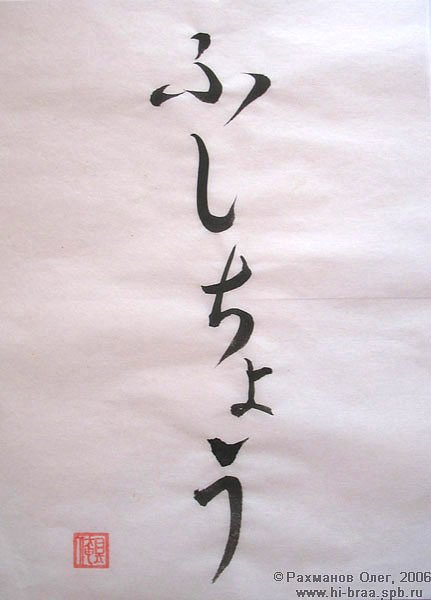 ふしちょう
©Рахманов Олег, 2006
www.hi-braa.spb.ru